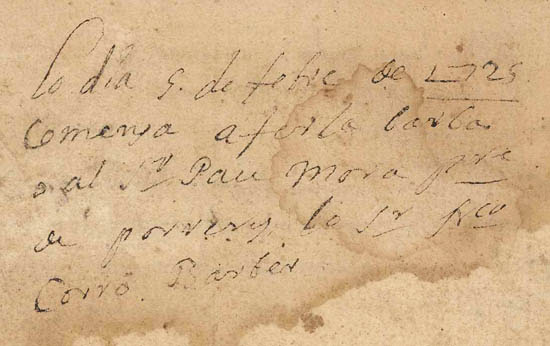 Lo dia 5. de febre de 1725.
Comensa a fer la barba
al Sr Pau Mora pre
de porreres lo Sr fco
Corró. Barber